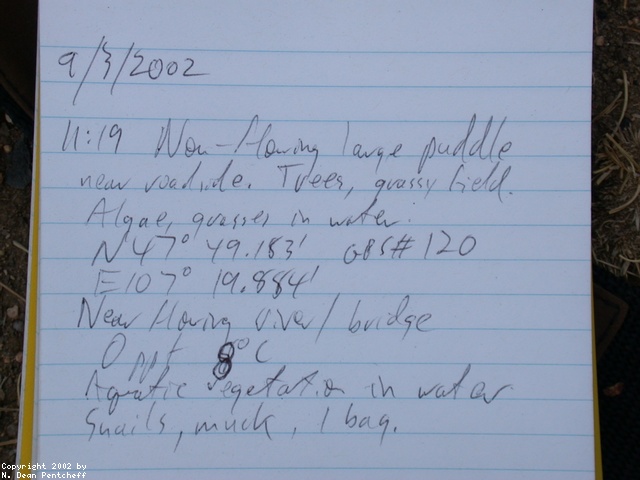 9/3/2002
11:19 Non-flowing large puddle
near roadside. Trees, grassy field.
Algae, grasses in water.
N47° 49.183' OBS# 120
E107° 19.884'
Near flowing river/bridge
0 ppt 8°C
Aquatic vegetation in water
Snails, muck, 1 bag.
Copyright 2002 by
N. Dean Pentcheff